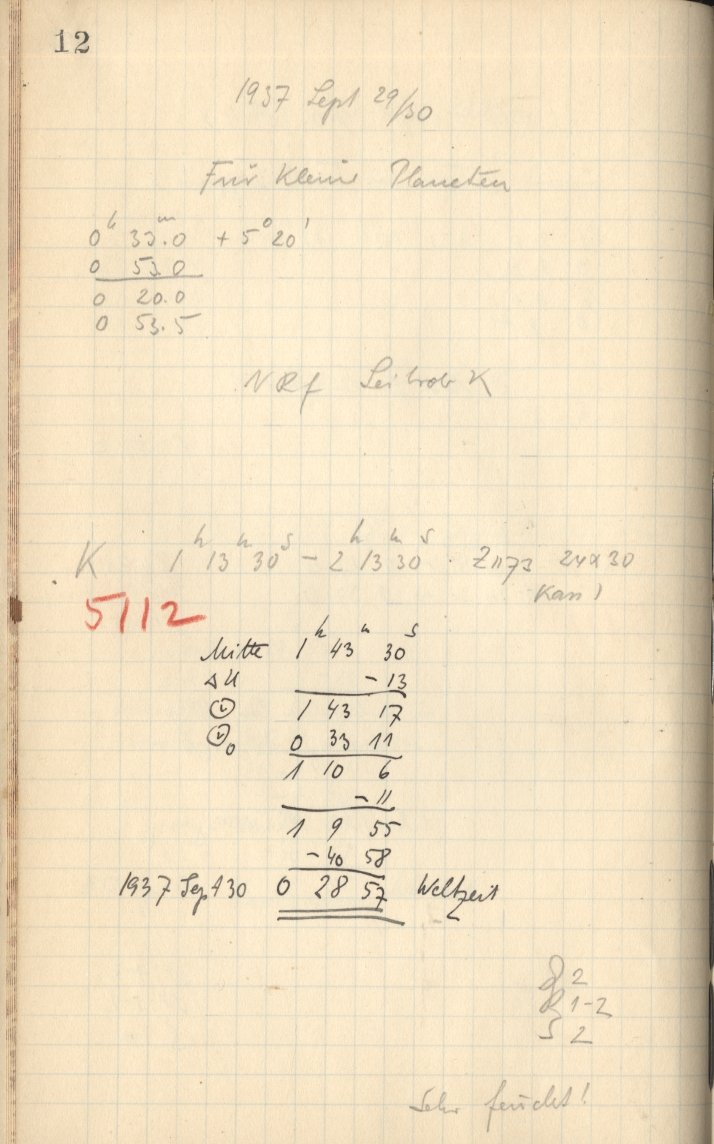 12
1937 Sept 29/30
Für Kleine Planeten
0ʰ 33ᵐ.0 + 5° 20'
0 53.0
0 20.0
0 53.5
NRf K
K 1ʰ 13ᵐ 30ˢ - 2ʰ 13ᵐ 30ˢ · Zn73 24x30
5112
Mitte 1ʰ 43ᵐ 30ˢ
ΔU - 13
1 43 17
0 33 11
1 10 6
- 11
1 9 55
- 40 58
1937 Sept 30 0 28 57 Weltzeit
2
R 1-2
S 2
Sehr feucht!